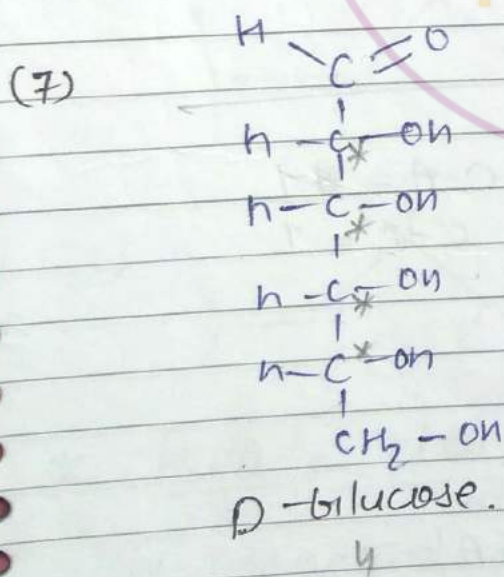 (7)
H O
C
H - C* - OH
H - C* - OH
H - C* - OH
H - C* - OH
CH2 - OH
D - Glucose.
4